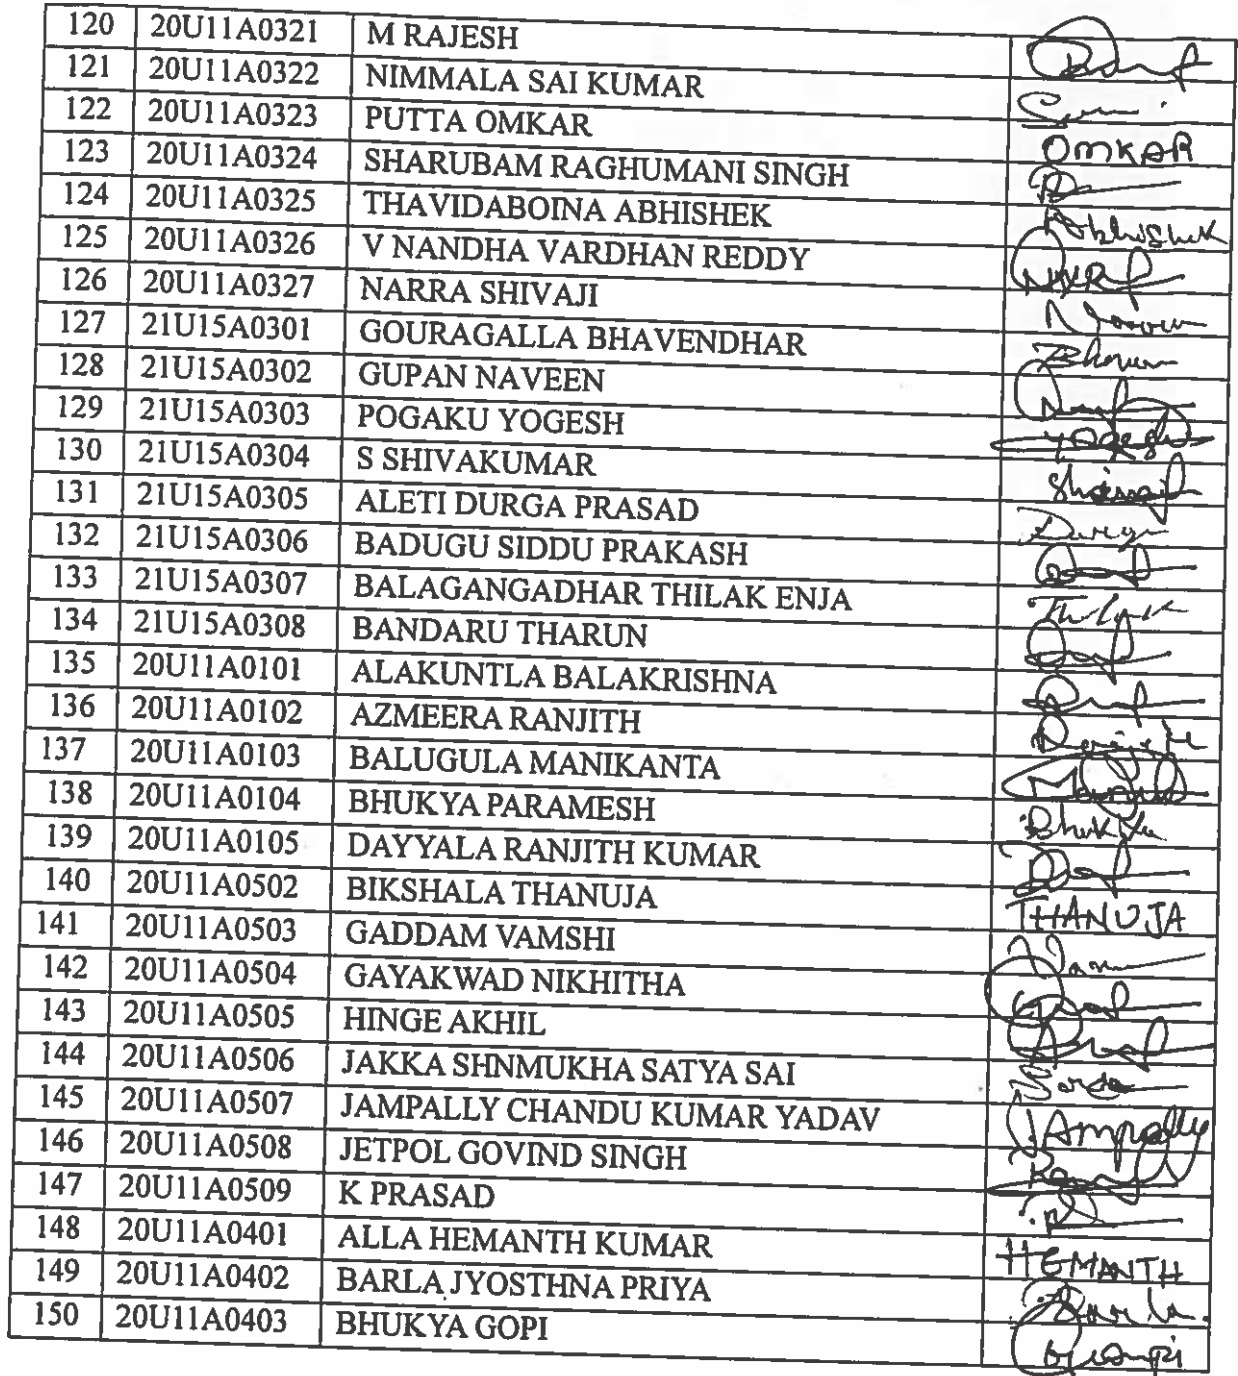 120 20U11A0321 M RAJESH
121 20U11A0322 NIMMALA SAI KUMAR
122 20U11A0323 PUTTA OMKAR OMKAR
123 20U11A0324 SHARUBAM RAGHUMANI SINGH
124 20U11A0325 THAVIDABOINA ABHISHEK Abhishek
125 20U11A0326 V NANDHA VARDHAN REDDY
126 20U11A0327 NARRA SHIVAJI
127 21U15A0301 GOURAGALLA BHAVENDHAR
128 21U15A0302 GUPAN NAVEEN
129 21U15A0303 POGAKU YOGESH Yogesh
130 21U15A0304 S SHIVAKUMAR
131 21U15A0305 ALETI DURGA PRASAD Durga
132 21U15A0306 BADUGU SIDDU PRAKASH
133 21U15A0307 BALAGANGADHAR THILAK ENJA Thilak
134 21U15A0308 BANDARU THARUN
135 20U11A0101 ALAKUNTLA BALAKRISHNA
136 20U11A0102 AZMEERA RANJITH
137 20U11A0103 BALUGULA MANIKANTA
138 20U11A0104 BHUKYA PARAMESH Bhukya
139 20U11A0105 DAYYALA RANJITH KUMAR
140 20U11A0502 BIKSHALA THANUJA THANUJA
141 20U11A0503 GADDAM VAMSHI
142 20U11A0504 GAYAKWAD NIKHITHA
143 20U11A0505 HINGE AKHIL
144 20U11A0506 JAKKA SHNMUKHA SATYA SAI
145 20U11A0507 JAMPALLY CHANDU KUMAR YADAV JAmpally
146 20U11A0508 JETPOL GOVIND SINGH
147 20U11A0509 K PRASAD
148 20U11A0401 ALLA HEMANTH KUMAR HEMANTH
149 20U11A0402 BARLA JYOSTHNA PRIYA Barla
150 20U11A0403 BHUKYA GOPI